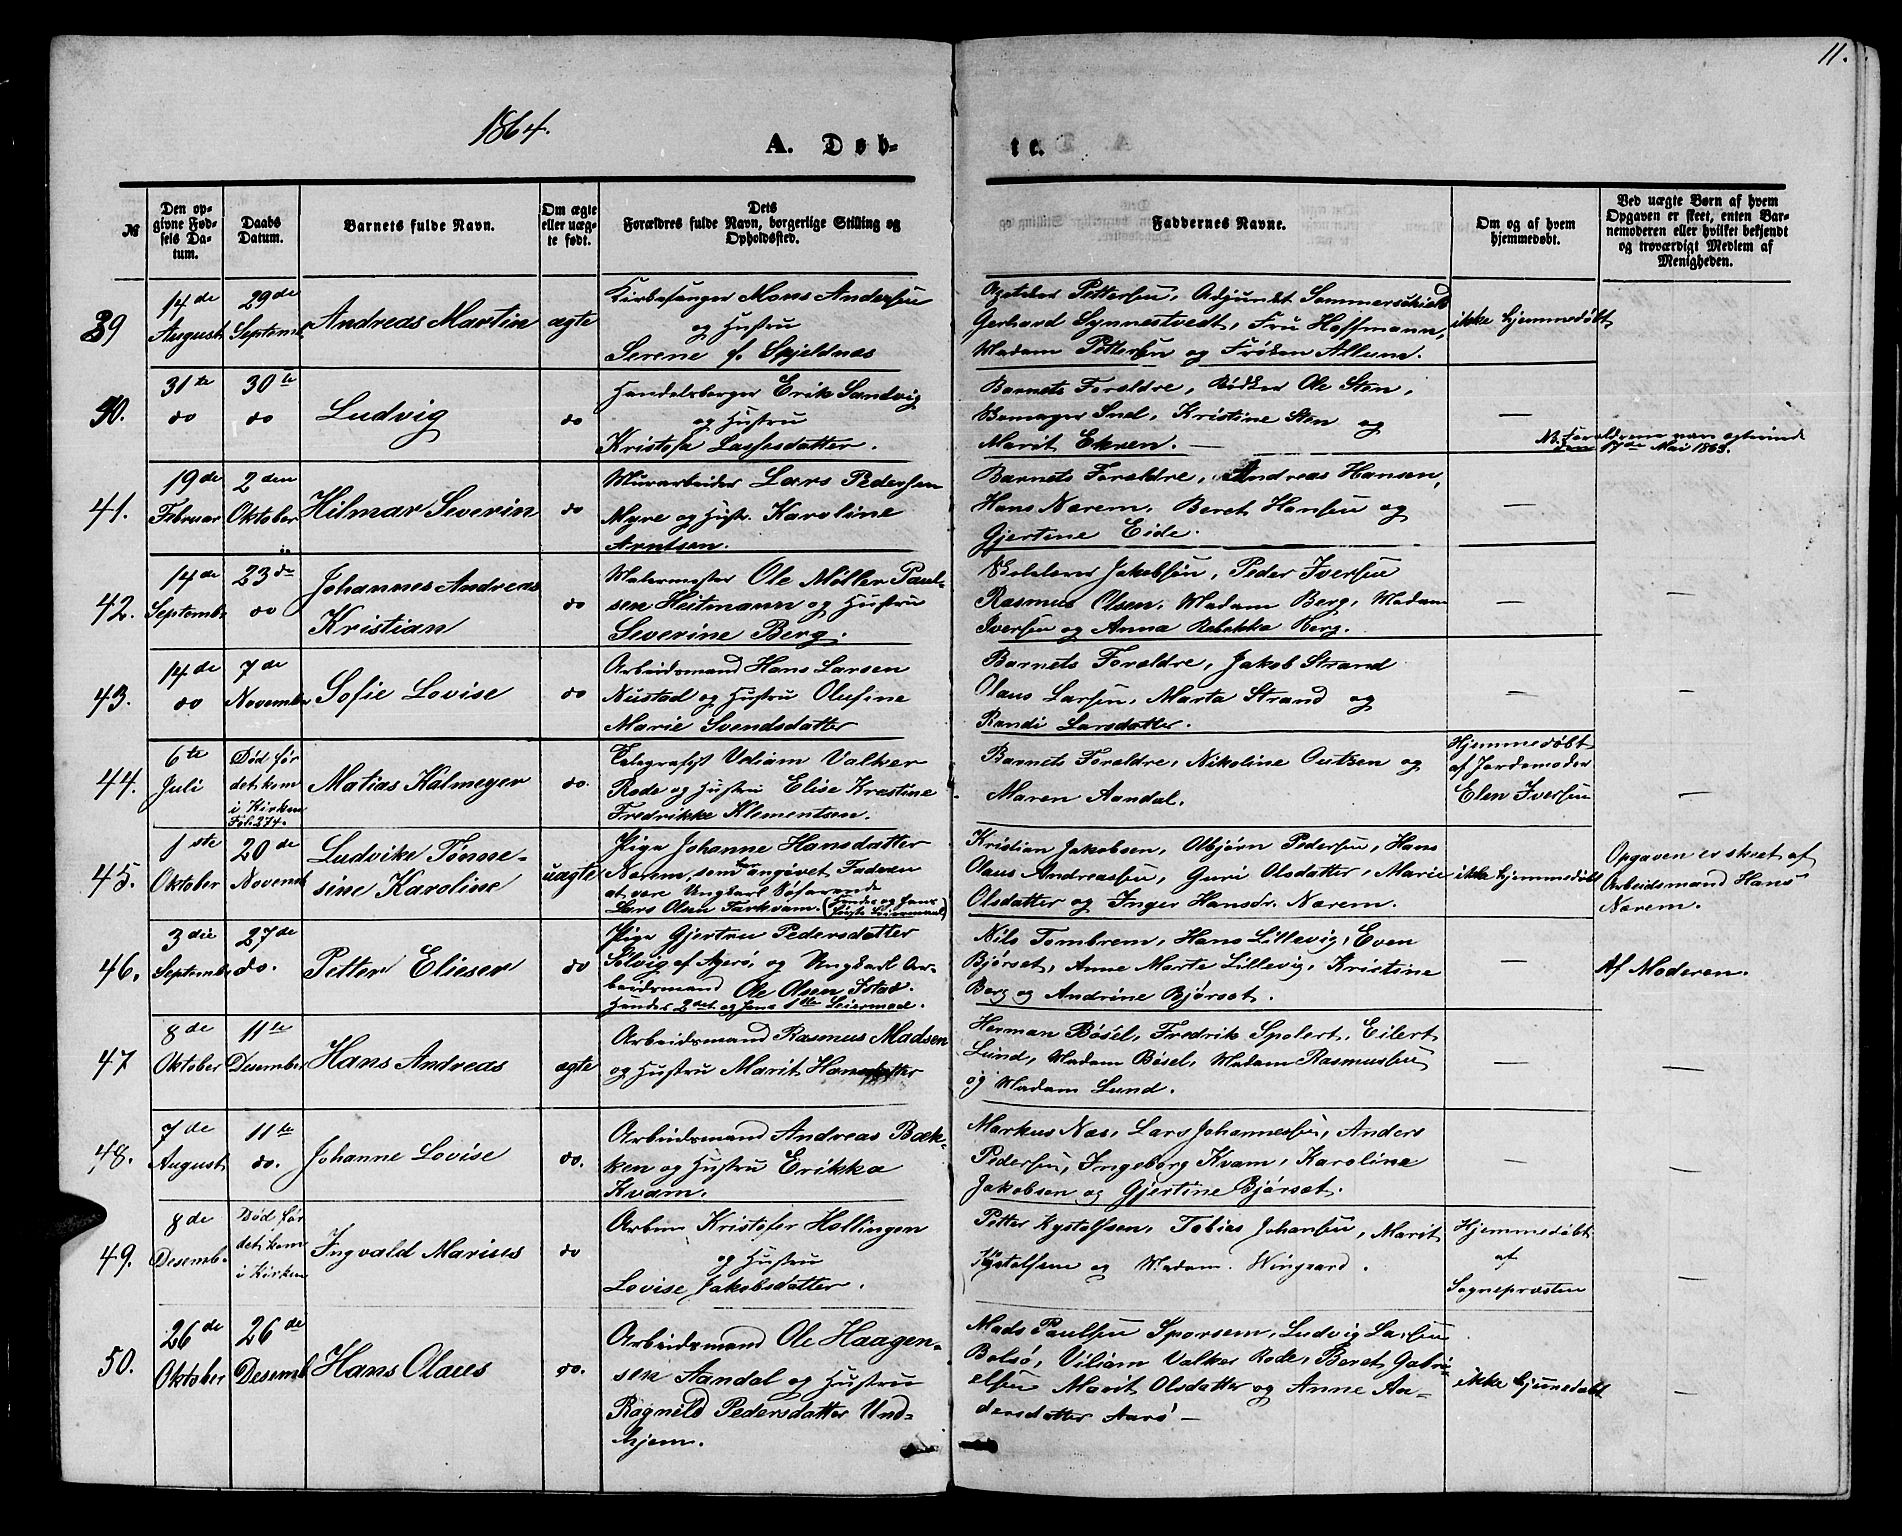 11.
1864.
A. Døb-
te.
№
Den op-
givne Fød-
sels Da-
tum.
Daabs
Datum.
Barnets fulde Navn.
Om ægte
eller uæg-
te født.
Dets
Forældres fulde Navn, borgerlige Stilling og
Opholdssted.
Faddernes Navne.
Om og af hvem
hjemmedøbt.
Ved uægte Børn af hvem
Opgaven er skeet, enten Bar-
nemoderen eller hvilket bekjendt
og troværdigt Medlem af
Menigheden.
39
14de
August
29de
Septemb.
Andreas Martin
ægte
Kirkesanger Mons Andersen
og Hustru
Serene f. Spjeldnæs
Pettersen, Adjunkt Sommerschield
Gerhard Synnestvedt, Fru Hoffmann,
Madam Pettersen og Frøken Allum.
ikke hjemmedøbt
40.
31te
do
30te
do
Ludvig
do
Handelsborger Erik Sandvig
og Hustru
Kristofa Lassesdatter.
Barnets Forældre, Bødker Ole Sten,
Snel, Kristine Sten og
Marit Ekren. —
—
NB. Forældrene ægteviede
17de Mai 1863.
41.
19de
Februar
2den
Oktober
Hilmar Severin
do
Murarbeider Lars Pedersen
Myre og Hustr. Karoline
Arntsen.
Barnets Forældre, Andreas Hansen,
Hans Nærem, Beret Hansen og
Gjertine Eide.
—
42.
14de
Septembr
23de
do
Johannes Andreas
Kristian
do
Malermester Ole Møller Paul-
sen Heitmann og Hustru
Severine Berg.
Jakobsen, Peder Iversen
Rasmus Olsen, Madam Berg, Madam
Iversen og Anna Rebekka Berg.
—
—
43.
14de
do
7de
Novembr
Sofie Lovise
do
Arbeidsmand Hans Larsen
Nustad og Hustru Olufine
Marie Svendsdatter
Barnets Forældre, Jakob Strand
Olaus Larsen, Marta Strand og
Randi Larsdatter.
—
—
44.
6te
Juli
Død før
det kom
i Kirken
Fol. 274.
Matias Kalmeyer
do.
Telegrafist Viliam Valker
Rode og Hustru Elise Krestine
Fredrikke Klementsen.
Barnets Forældre, Nikoline Oertsen og
Maren Aandal.
Hjemmedøbt
af Jordemoder
Elen Iversen
—
45.
1ste
Oktober
20de
Novemb
Ludvike Tønne-
sine Karoline
uægte
Pige Johanne Hansdatter
Nærem, som har angivet Faderen
at være Ungkarl Søfarende
Lars Olsen Tarkvam. (Hendes og hans
første Leiermaal)
Kristian Jakobsen, Albjørn Pedersen, Hans
Olaus Andreassen, Guri Olsdatter, Marie
Olsdatter og Inger Hansdr. Nærem.
ikke hjemmedøbt
Opgaven er skeet af
Arbeidsmand Hans
Nærem.
46.
3die
Septembr
27de
do.
Petter Elieser
do
Pige Gjertru Pedersdatter
Solvig af Agerø, og Ungkarl Ar-
beidsmand Ole Olsen Istad.
Hendes 2det og hans 1ste Leiermaal.
Nils Tornbrem, Hans Lillevig, Even
Bjørset, Anne Marte Lillevig, Kristine
Berg og Andrine Bjørset.
—
Af Moderen.
47
8de
Oktober
11te
Desember
Hans Andreas
ægte
Arbeidsmand Rasmus Madsen
og Hustru Marit Hansdatter
Herman Bøsel, Fredrik Spolert, Eilert
Lund, Madam Bøsel, Madam Rasmussen
og Madam Lund.
—
—
48.
7de
August
11te
do.
Johanne Lovise
do.
Arbeidsmand Andreas Bæk-
ken og Hustru Erikka
Kvam.
Markus Næs, Lars Johannessen, Anders
Pedersen, Ingeborg Kvam, Karoline
Jakobsen og Gjertine Bjørset.
—
—
49.
8de
Desemb.
Død før
det kom
i Kirken
Ingvald Marius
do
Arbm Kristofer Hollingen
og Hustru
Lovise Jakobsdatter.
Petter Kystolfsen, Tobias Johansen, Marit
Kystolfsen og Madam Wingaard.
Hjemmedøbt
af
Sognepræsten
—
50.
26de
Oktober
26de
Desemb
Hans Olaus
do.
Arbeidsmand Ole Haagen-
sen Aandal og Hustru
Ragnild Pedersdatter Und-
hjem.
Mads Paulsen Sporsem, Ludvig Larsen
Bolsø, Viliam Valker Rode, Beret Gabri-
elsen Marit Olsdatter og Anne An-
dersdatter Aarø —
ikke hjemmedøbt
—